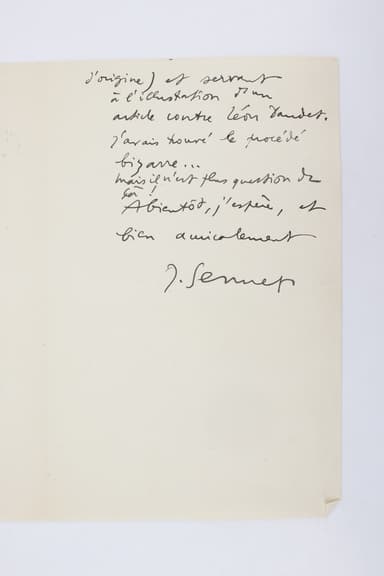 d'origine) et servant
à l'illustation d'un
article contre Léon Daudet.
j'avais trouvé le procédé
bizarre...
mais il n'est plus question de
ça !
A bientôt, j'espère, et
bien amicalement
J. Sennep